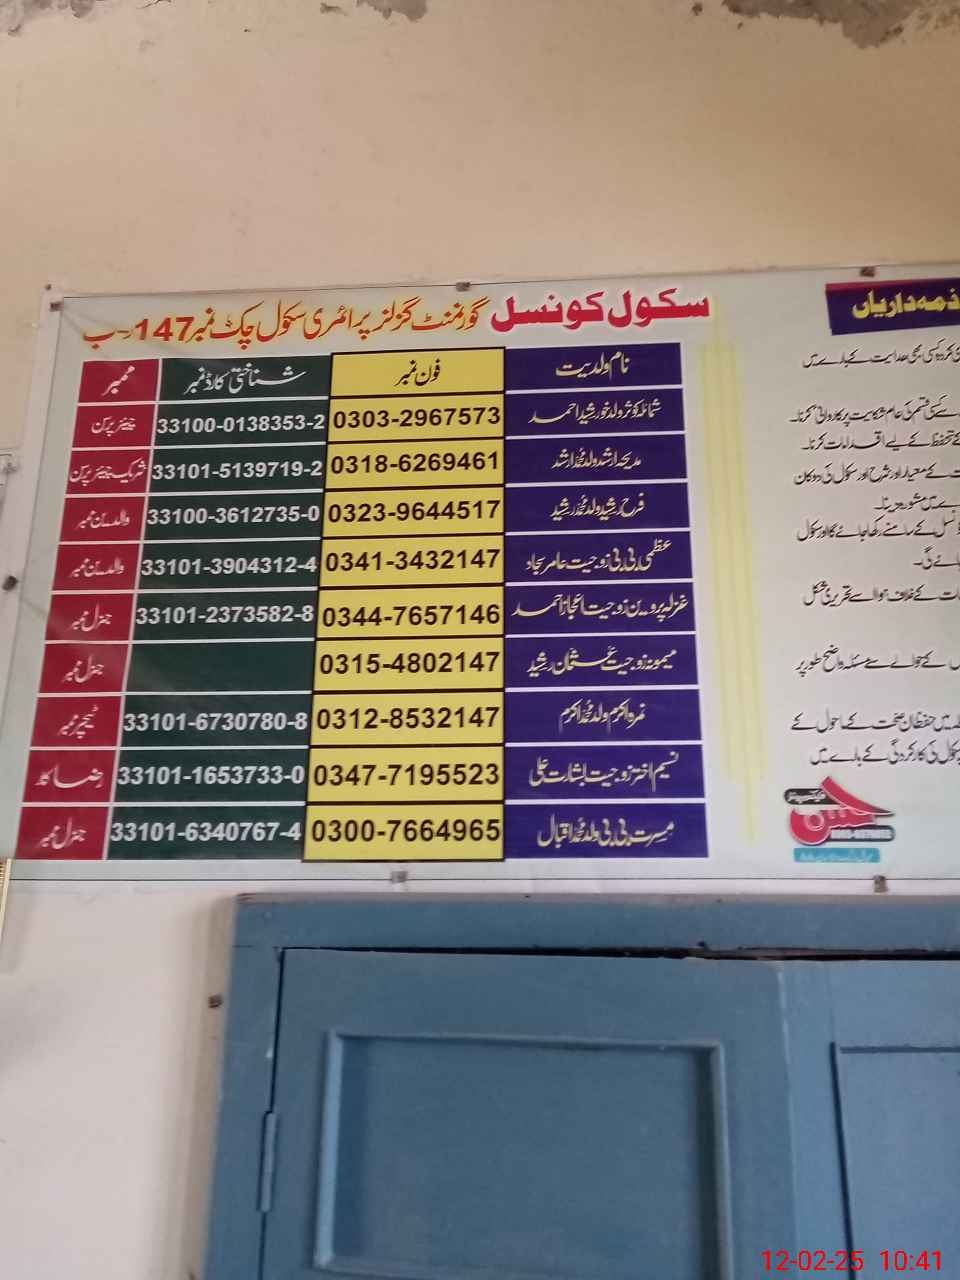 سکول کونسل گورنمنٹ گرلز پرائمری سکول چک نمبر 147 ر-ب
نام ولدیت فون نمبر شناختی کارڈ نمبر ممبر
شمائلہ کوثر ولد خورشید احمد 0303-2967573 33100-0138353-2 چیئرپرسن
مدیحہ ارشد ولد محمد ارشد 0318-6269461 33101-5139719-2 شریک چیئرپرسن
فرح رشید ولد محمد رشید 0323-9644517 33100-3612735-0 والدین ممبر
عظمیٰ بی بی زوجیت عامر سجاد 0341-3432147 33101-3904312-4 والدین ممبر
غزالہ پروین زوجیت اعجاز احمد 0344-7657146 33101-2373582-8 جنرل ممبر
میمونہ زوجیت عثمان رشید 0315-4802147 جنرل ممبر
نمرہ اکرم ولد محمد اکرم 0312-8532147 33101-6730780-8 ٹیچر ممبر
نسیم اختر زوجیت بشارت علی 0347-7195523 33101-1653733-0 رضا کار
مسرت بی بی ولد محمد اقبال 0300-7664965 33101-6340767-4 جنرل ممبر
ذمہ داریاں
کسی بھی ہدایت کے بارے میں
کسی قسم کی عام شکایت پر کاروائی کرنا۔
کے تحفظ کے لیے اقدامات کرنا۔
کے معیار اور شرح اور سکول کی دوکان
میں مشورہ دینا۔
کے سامنے رکھا جائے گا اور سکول
جائے گی۔
کے خلاف ہو اسے تحریری شکل
کے حوالے سے مسئلہ واضح طور پر
میں حفظان صحت کے ماحول کے
سکول کی کارکردگی کے بارے میں
12-02-25 10:41